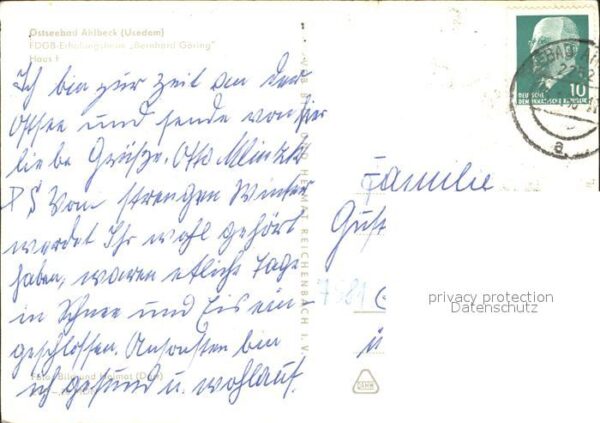 Ostseebad Ahlbeck (Usedom)
FDGB-Erholungsheim „Bernhard Göring"
Haus I
Ich bin zur Zeit an der
Ostsee und sende von hier
liebe Grüsze. Otto
PS Vom strengen Winter
werdet Ihr wohl gehört
haben, waren etliche Tage
in Schnee und Eis ein-
geschlossen. Ansonsten bin
ich gesund u. wohlauf.
BILD UND HEIMAT REICHENBACH I. V.
10
DEUTSCHE
DEMOKRATISCHE REPUBLIK
a
Familie
Gust
privacy protection
Datenschutz